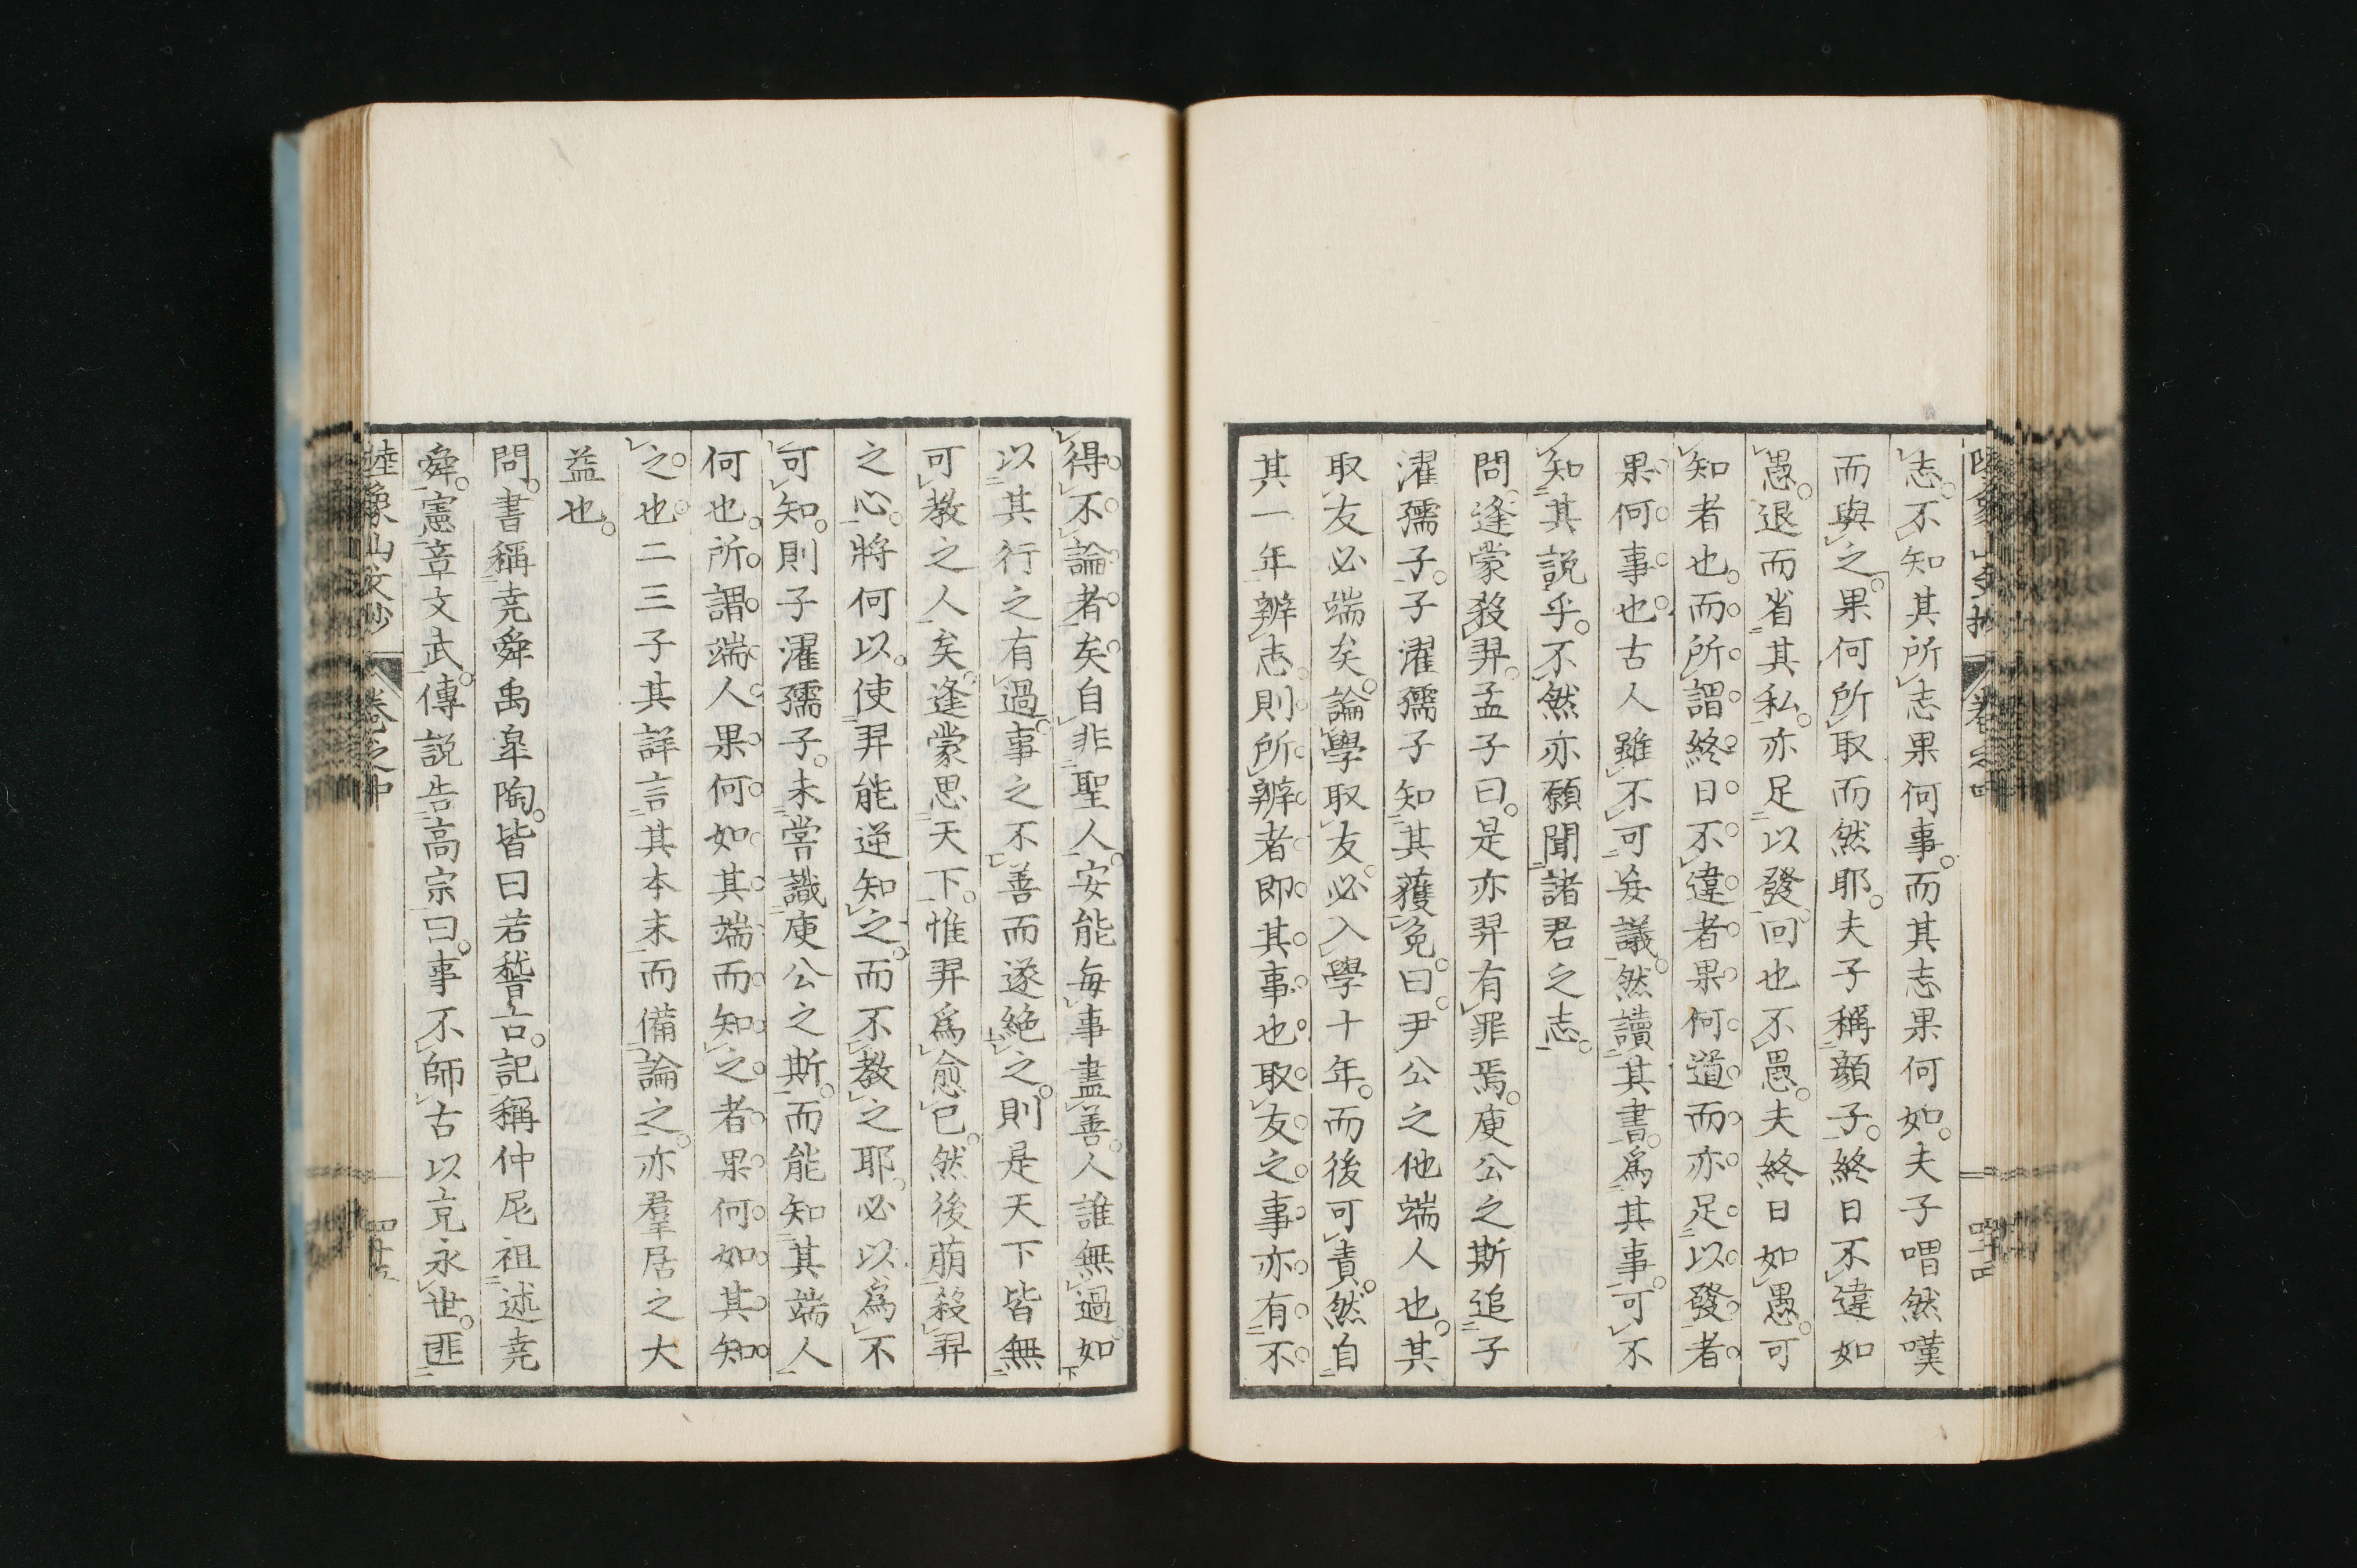 志。不知其所志果何事。而其志果何如。夫子喟然嘆
而與之。果何所取而然耶。夫子稱顔子。終日不違如
愚。退而省其私。亦足以發。回也不愚。夫終日如愚。可
知者也。而所謂終日不違者果何道而亦足以發者
果何事也古人雖不可妄議。然讀其書。爲其事。可不
知其説乎。不然亦願聞諸君之志。
問。逢蒙殺羿。孟子曰。是亦羿有罪焉。庾公之斯追子
濯孺子。子濯孺子知其獲免。曰。尹公之他端人也。其
取友必端矣。論學取友。必入學十年。而後可責。然自
其一年辨志則所辨者即其事也取友之事亦有不
得不論者矣自非聖人。安能毎事盡善。人誰無過。如
以其行之有過。事之不善而遂絶之。則是天下皆無
可教之人矣。逢蒙思天下。惟羿爲愈已。然後萠殺羿
之心。將何以。使羿能逆知之。而不教之耶。必以爲不
可知。則子濯孺子。未甞識庾公之斯。而能知其端人
何也。所謂端人果何如其端而知之者果何如其知
之也二三子其詳言其本末而備論之。亦羣居之大
益也。
問。書稱堯舜禹皐陶。皆曰若稽古。記稱仲尼祖述堯
舜。憲章文武。傳説告高宗曰。事不師古以克永世。匪
陸象山文抄 卷之中